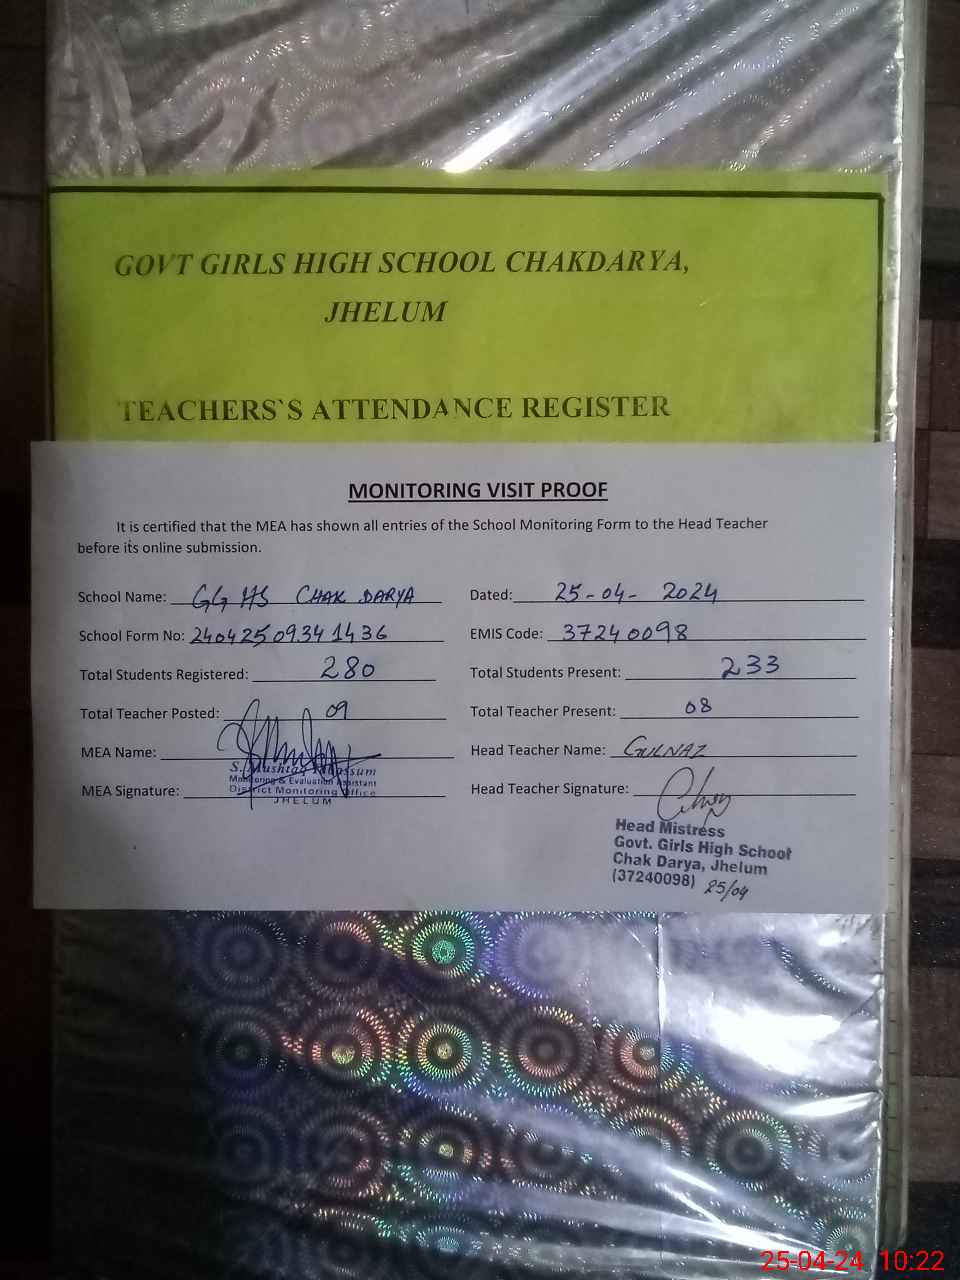 GOVT GIRLS HIGH SCHOOL CHAKDARYA,
JHELUM
TEACHERS`S ATTENDANCE REGISTER
MONITORING VISIT PROOF
It is certified that the MEA has shown all entries of the School Monitoring Form to the Head Teacher
before its online submission.
School Name: GGHS CHAK DARYA Dated: 25-04-2024
School Form No: 24042509341436 EMIS Code: 37240098
Total Students Registered: 280 Total Students Present: 233
Total Teacher Posted: 09 Total Teacher Present: 08
MEA Name: Head Teacher Name: GULNAZ
S. Mushtaq Tabassum
Monitoring & Evaluation Assistant
MEA Signature: District Monitoring Office Head Teacher Signature:
JHELUM
Head Mistress
Govt. Girls High School
Chak Darya, Jhelum
(37240098) 25/04
25-04-24 10:22